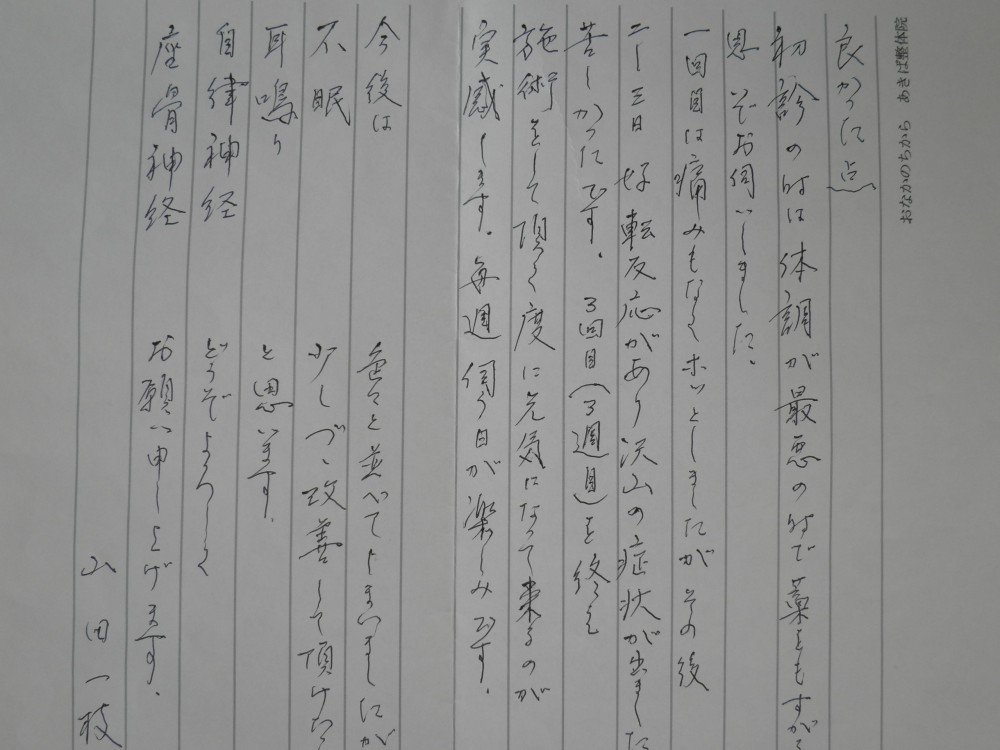 おなかのちから あきば整体院
良かった点
初診の時は体調が最悪の時で藁をもすがる
思いでお伺いしました。
一回目は痛みもなくホッとしましたがその後
二~三日 好転反応があり沢山の症状が出ました
苦しかったです。 3回目(3週目)を終え
施術をして頂く度に元気になって来るのが
実感します。毎週伺う日が楽しみです。
今後は 色々と並べてしまいましたが
不眠 少しづつ改善して頂けたら
耳鳴り と思います。
自律神経 どうぞよろしく
座骨神経 お願い申し上げます。
山田一枝